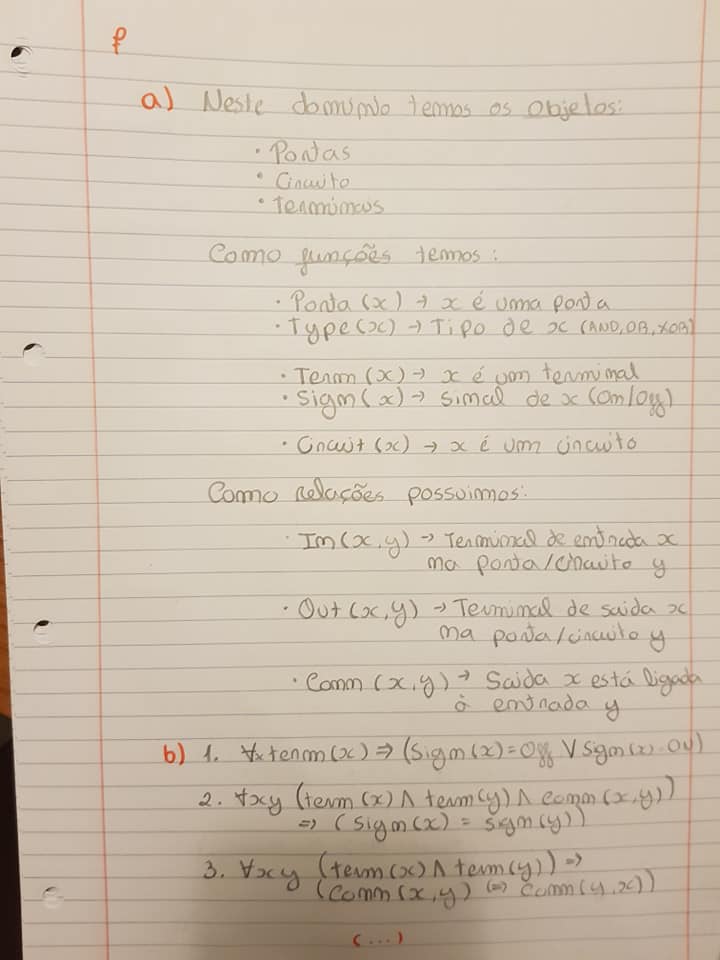 f
a) Neste domínio temos os objetos:
• Portas
• Circuito
• Terminais
Como funções temos:
• Porta (x) → x é uma porta
• Type (x) → Tipo de x (AND, OR, XOR)
• Term (x) → x é um terminal
• Sign (x) → sinal de x (On/Off)
• Circuit (x) → x é um circuito
Como relações possuimos:
• In (x, y) → Terminal de entrada x
na porta/circuito y
• Out (x, y) → Terminal de saida x
na porta/circuito y
• Conn (x, y) → Saida x está ligada
à entrada y
b) 1. ∀x term (x) ⇒ (Sign (x) = Off ∨ Sign (x) = On)
2. ∀xy (term (x) ∧ term (y) ∧ conn (x, y))
⇒ (sign (x) = sign (y))
3. ∀xy (term (x) ∧ term (y)) ⇒
(conn (x, y) ⇔ conn (y, x))
(...)